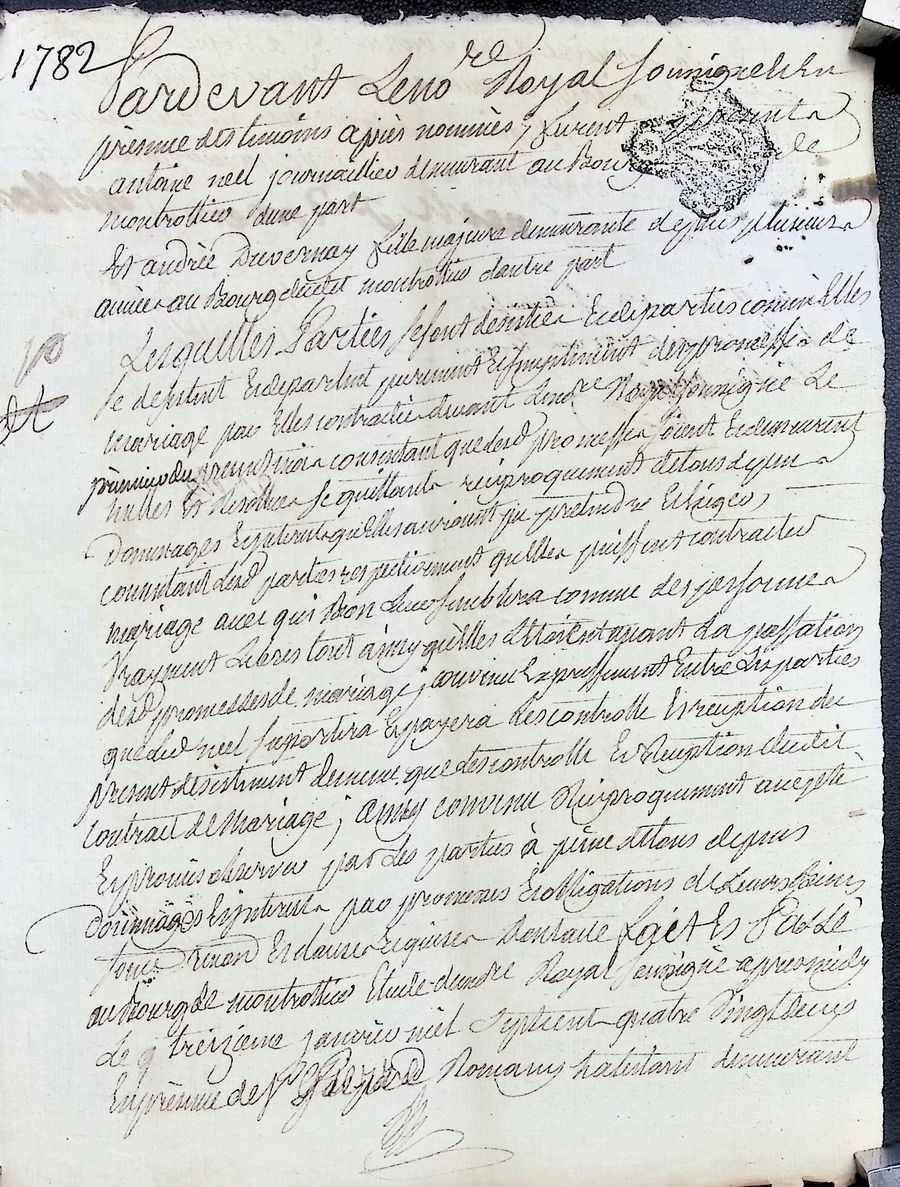 1782
Pardevant Le no.re Royal soussigné et En
présence des témoins après nommés, furent présents
antoine neel journaillier demeurant au Bourg de
montrottier d'une part
Et andrée Duvernay fille majeure demeurante depuis plusieurs
années au Bourg dudit montrottier d'autre part
Lesquelles Parties se sont désistées Et départies comme Elles
se désistent Et départent purement Et simplement des promesses de
mariage par Elles contractées devant Le no.re Royal soussigné Le
premier du présent mois consentant que desd. promesses soient Et demeurent
nulles Et Résolues se quittants réciproquement de tous dépens
Dommages Et interets qu'elles auroient pu prétendre Et Exiger,
consentant Lesd. parties respectivement qu'elles puissent contracter
mariage avec qui Bon Leur semblera comme des personnes
Vrayment Libres tout ainsy qu'elles Etoient avant La passation
desd. promesses de mariage, convenu Expressement Entre Les parties
que Led. neel suportera Et payera Les controlle Et reception du
present desistement de meme que des controlle Et Reception dudit
contrait de Mariage; ainsy convenu Réciproquement accepté
Et promis observer par Les parties à peine de tous depens
Dommages Et interets par promesses Et obligations de Leurs Biens
soum. renon. Et clauses requises Dont acte fait Et Passé
au Bourg de montrottier Etude dud. no.re Royal soussigné apres midy
Le treizieme janvier mil sept cent quatre Vingt deux
En présence de s.r Romans habitant demeurant